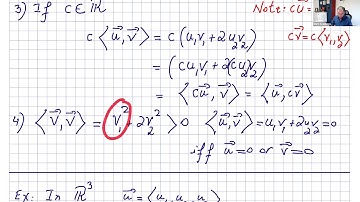 3) If c∈ℝ
Note: cu⃗ =
cv⃗ = c⟨v₁, v₂⟩
c⟨u⃗, v⃗⟩ = c(u₁v₁ + 2u₂v₂)
= (cu₁v₁ + 2(cu₂v₂)
= ⟨cu⃗, v⃗⟩ = ⟨u⃗, cv⃗⟩
4) ⟨v⃗, v⃗⟩ = v₁² + 2v₂² > 0 ⟨u⃗, v⃗⟩ = u₁v₁ + 2u₂v₂ = 0
iff u⃗ = 0 or v⃗ = 0
Ex: In ℝ³ u⃗ = ⟨u₁, u₂, u₃⟩